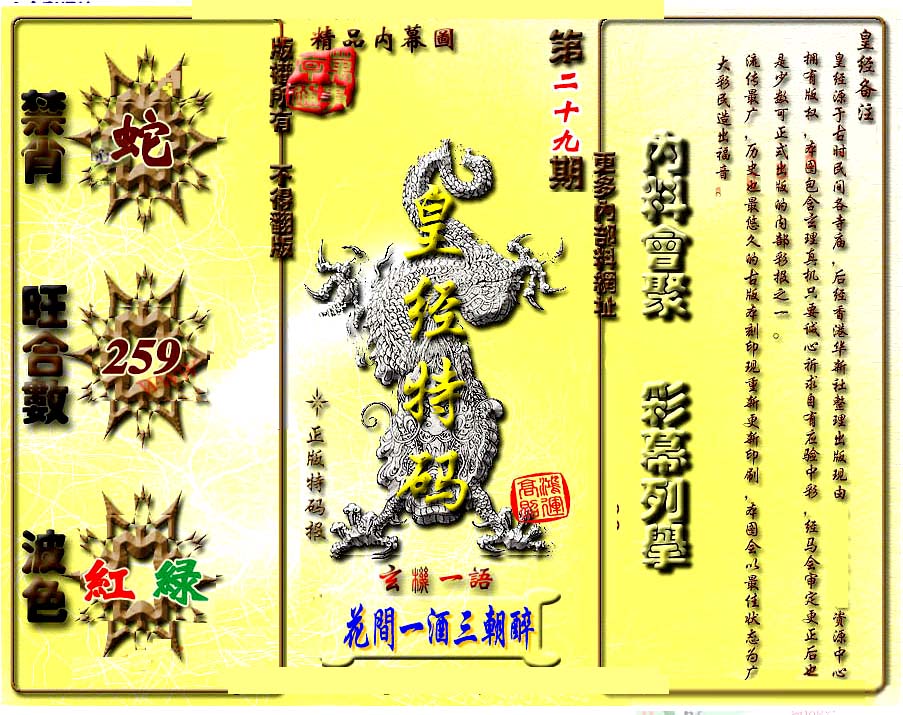 皇经备注
皇经源于古时民间各寺庙，后经香港华新社整理出版现由 资源中心
拥有版权，本图包含玄理真机只要诚心祈求自有应验中彩，经马会审定更正后也
是少数可正式出版的内部彩报之一。
流传最广，历史也最悠久的古版本刻印现重新更新印刷，本图会以最佳状态为广
大彩民造出福音
内料會聚 彩幕列舉
更多內部料網址
第二十九期
精品内幕圖
版權所有 不得翻版
皇经特码
正版特码报
鴻運
高照
玄機一語
花間一酒三朝醉
禁肖
蛇
旺合數
259
波色
紅 綠